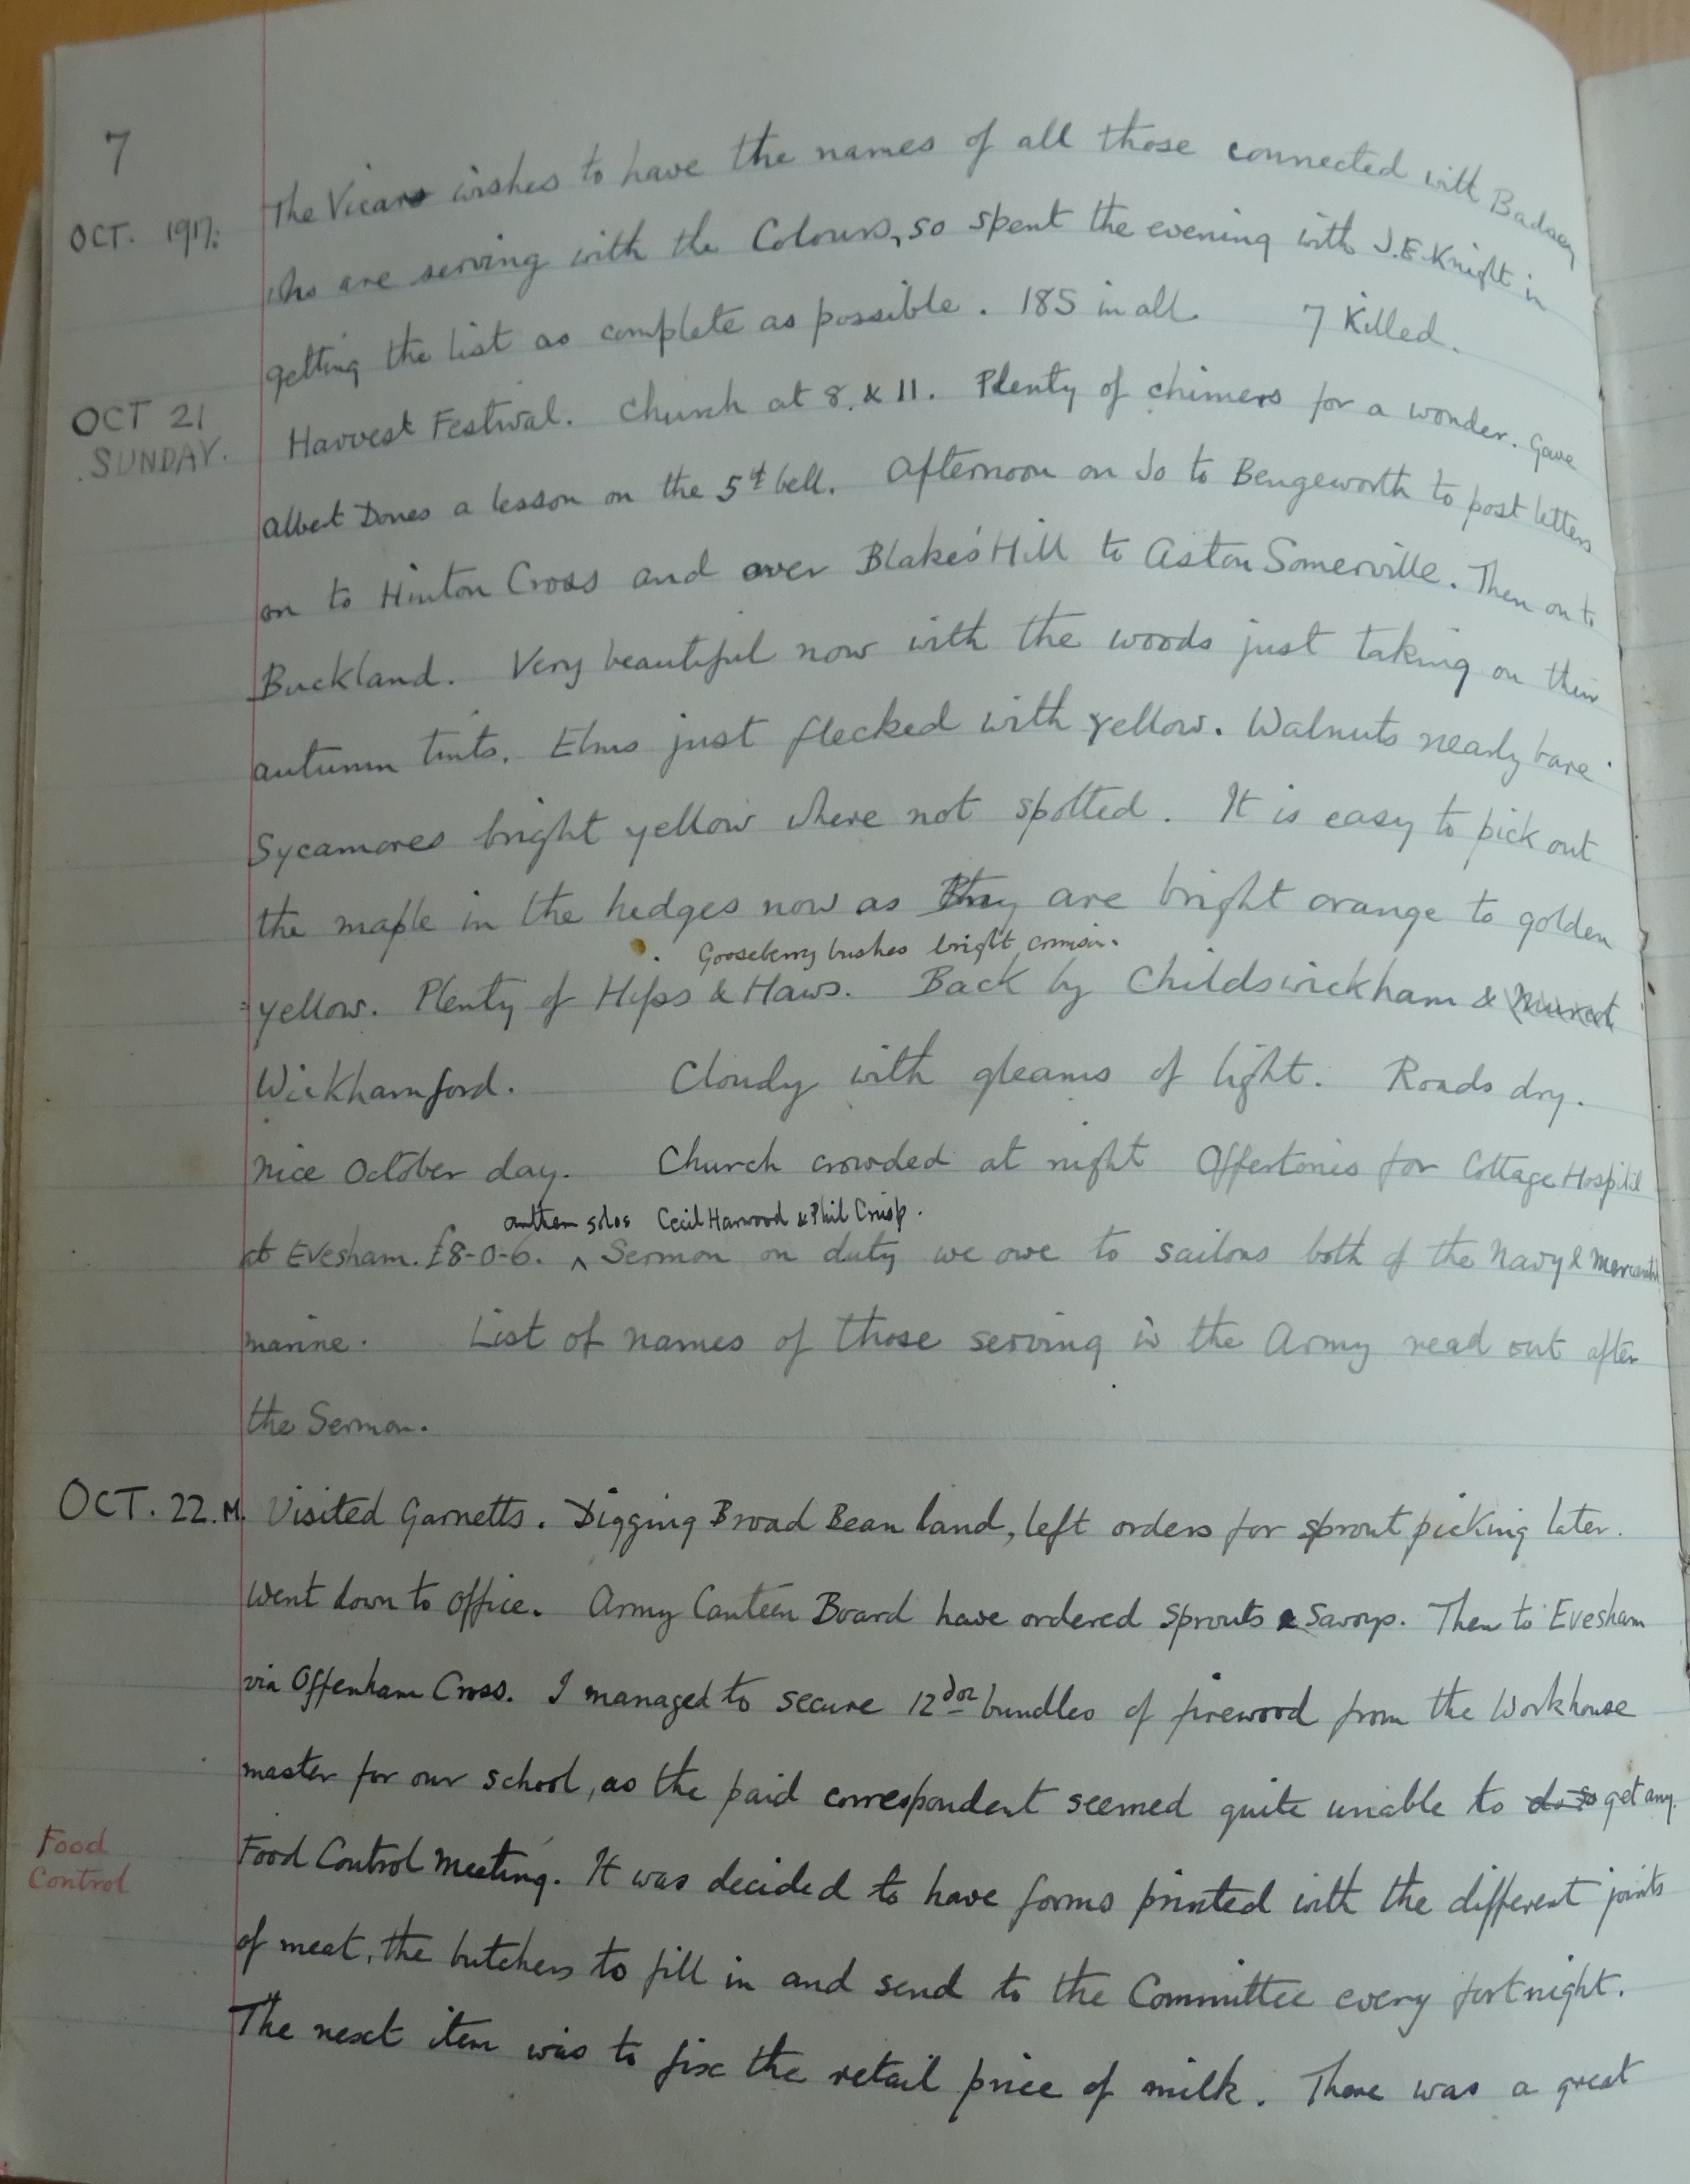 7
OCT. 1917.
The Vicar wishes to have the names of all those connected with Badsey
who are serving with the Colours, so spent the evening with J.E. Knight in
getting the list as complete as possible. 185 in all. 7 Killed.
OCT 21
SUNDAY.
Harvest Festival. Church at 8. & 11. Plenty of chimers for a wonder. Gave
Albert Dones a lesson on the 5th bell. Afternoon on Jo to Bengeworth to post letters
on to Hinton Cross and over Blake's Hill to Aston Somerville. Then on to
Buckland. Very beautiful now with the woods just taking on their
autumn tints. Elms just flecked with yellow. Walnuts nearly bare.
Sycamores bright yellow where not spotted. It is easy to pick out
the maple in the hedges now as they are bright orange to golden
Gooseberry bushes bright crimson.
yellow. Plenty of Hips & Haws. Back by Childswickham &
Wickhamford. Cloudy with gleams of light. Roads dry.
Nice October day. Church crowded at night Offertories for Cottage Hospital
anthem solos Cecil Harwood & Phil Crisp.
at Evesham. £8-0-6. ^ Sermon on duty we owe to sailors both of the Navy & Mercantile
marine. List of names of those serving in the Army read out after
the Sermon.
OCT. 22. M. Visited Garnetts. Digging Broad Bean land, left orders for sprout picking later.
Went down to office. Army Canteen Board have ordered Sprouts & Savoys. Then to Evesham
via Offenham Cross. I managed to secure 12 doz bundles of firewood from the Workhouse
master for our school, as the paid correspondent seemed quite unable to do so get any.
Food
Control
Food Control Meeting. It was decided to have forms printed with the different joints
of meat, the butchers to fill in and send to the Committee every fortnight.
The next item was to fix the retail price of milk. There was a great